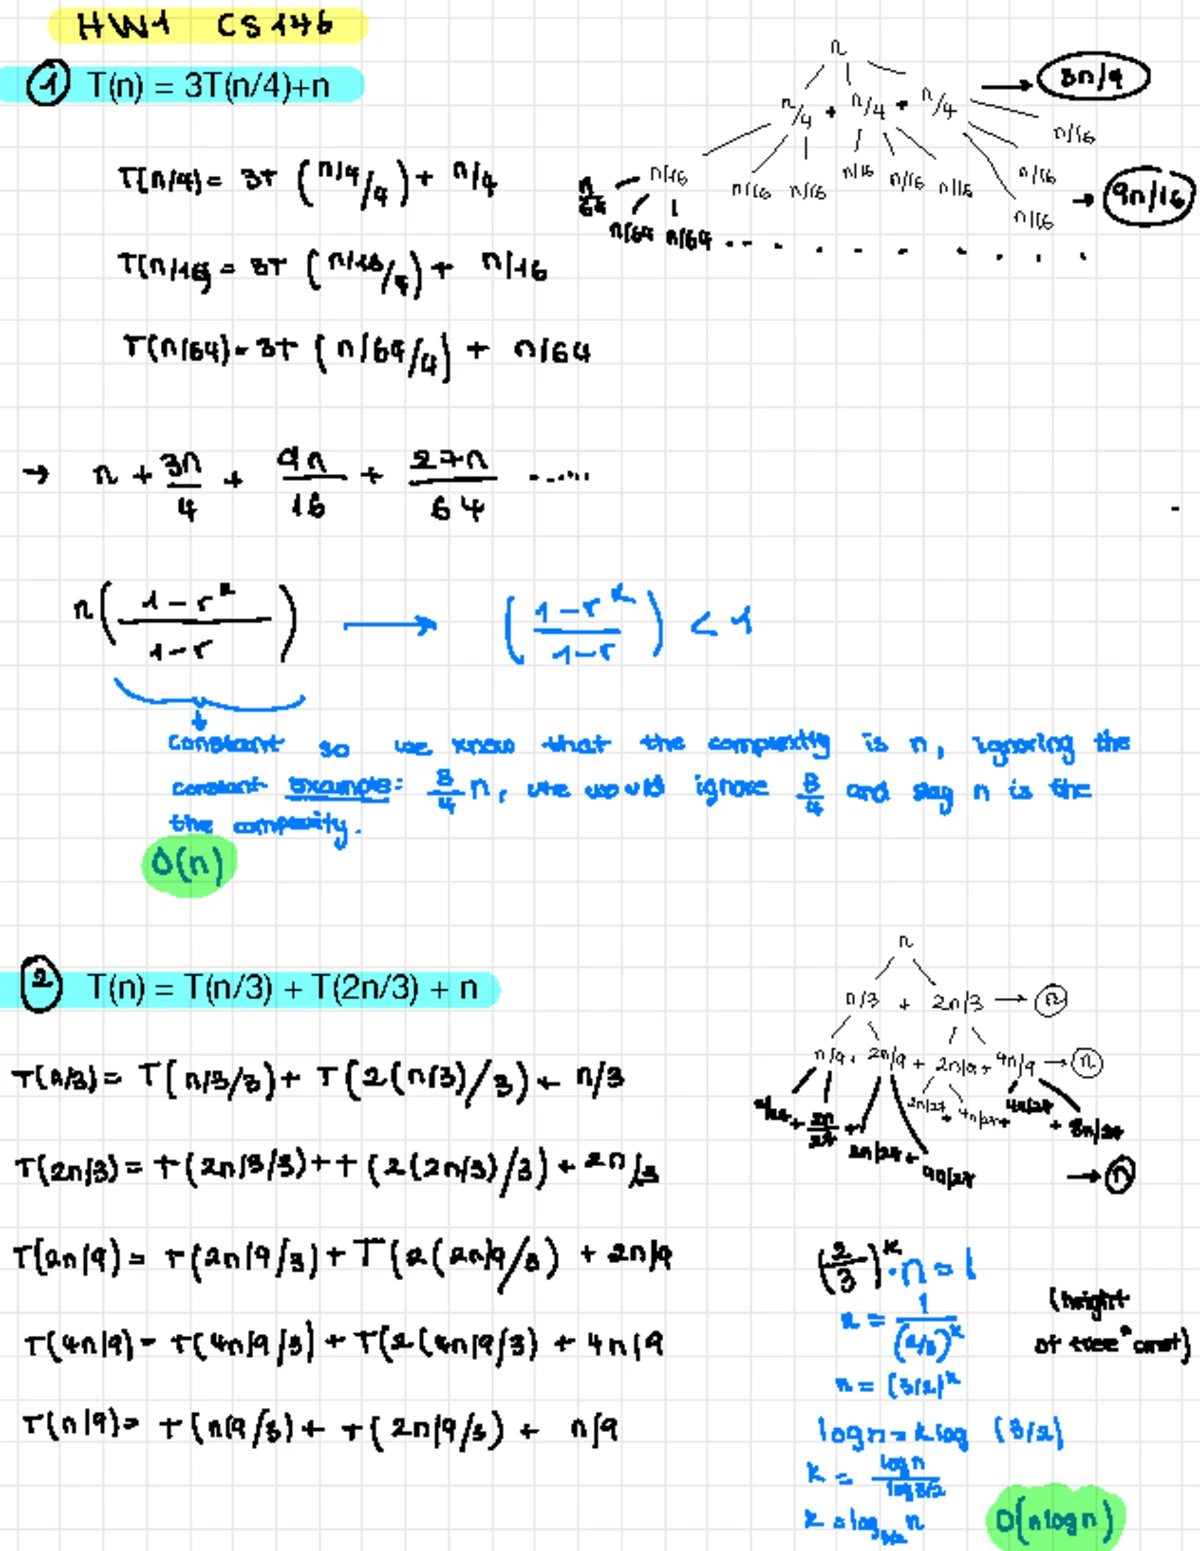 HW1 CS146
① T(n) = 3T(n/4)+n
T(n/4) = 3T (n/4/4) + n/4
T(n/16) = 3T (n/16/4) + n/16
T(n/64) = 3T (n/64/4) + n/64
n
n/4 + n/4 + n/4 → 3n/4
n/16 n/16 n/16 n/16 n/16 n/16 n/16 n/16 n/16 → 9n/16
n/64 n/64 n/64 ..........
→ n + 3n/4 + 9n/16 + 27n/64 ......
n( (1-r^k)/(1-r) ) → ( (1-r^k)/(1-r) ) < 1
constant so we know that the complexity is n, ignoring the
constant example: 8/4 n, we would ignore 8/4 and say n is the
the complexity.
O(n)
② T(n) = T(n/3) + T(2n/3) + n
T(n/3) = T(n/3/3) + T(2(n/3)/3) + n/3
T(2n/3) = T(2n/3/3) + T(2(2n/3)/3) + 2n/3
T(2n/9) = T(2n/9/3) + T(2(2n/9/3) + 2n/9
T(4n/9) = T(4n/9/3) + T(2(4n/9/3) + 4n/9
T(n/9) = T(n/9/3) + T(2n/9/3) + n/9
n
n/3 + 2n/3 → n
n/9 + 2n/9 + 2n/9 + 4n/9 → n
n/27 + 2n/27 + 2n/27 + 4n/27 2n/27 + 4n/27 + 4n/27 + 8n/27
→ n
(2/3)^k · n = 1
n = 1/(2/3)^k
n = (3/2)^k
log n = k log (3/2)
k = log n / log 3/2
k = log_{3/2} n
(height
of tree * cost)
O(n log n)